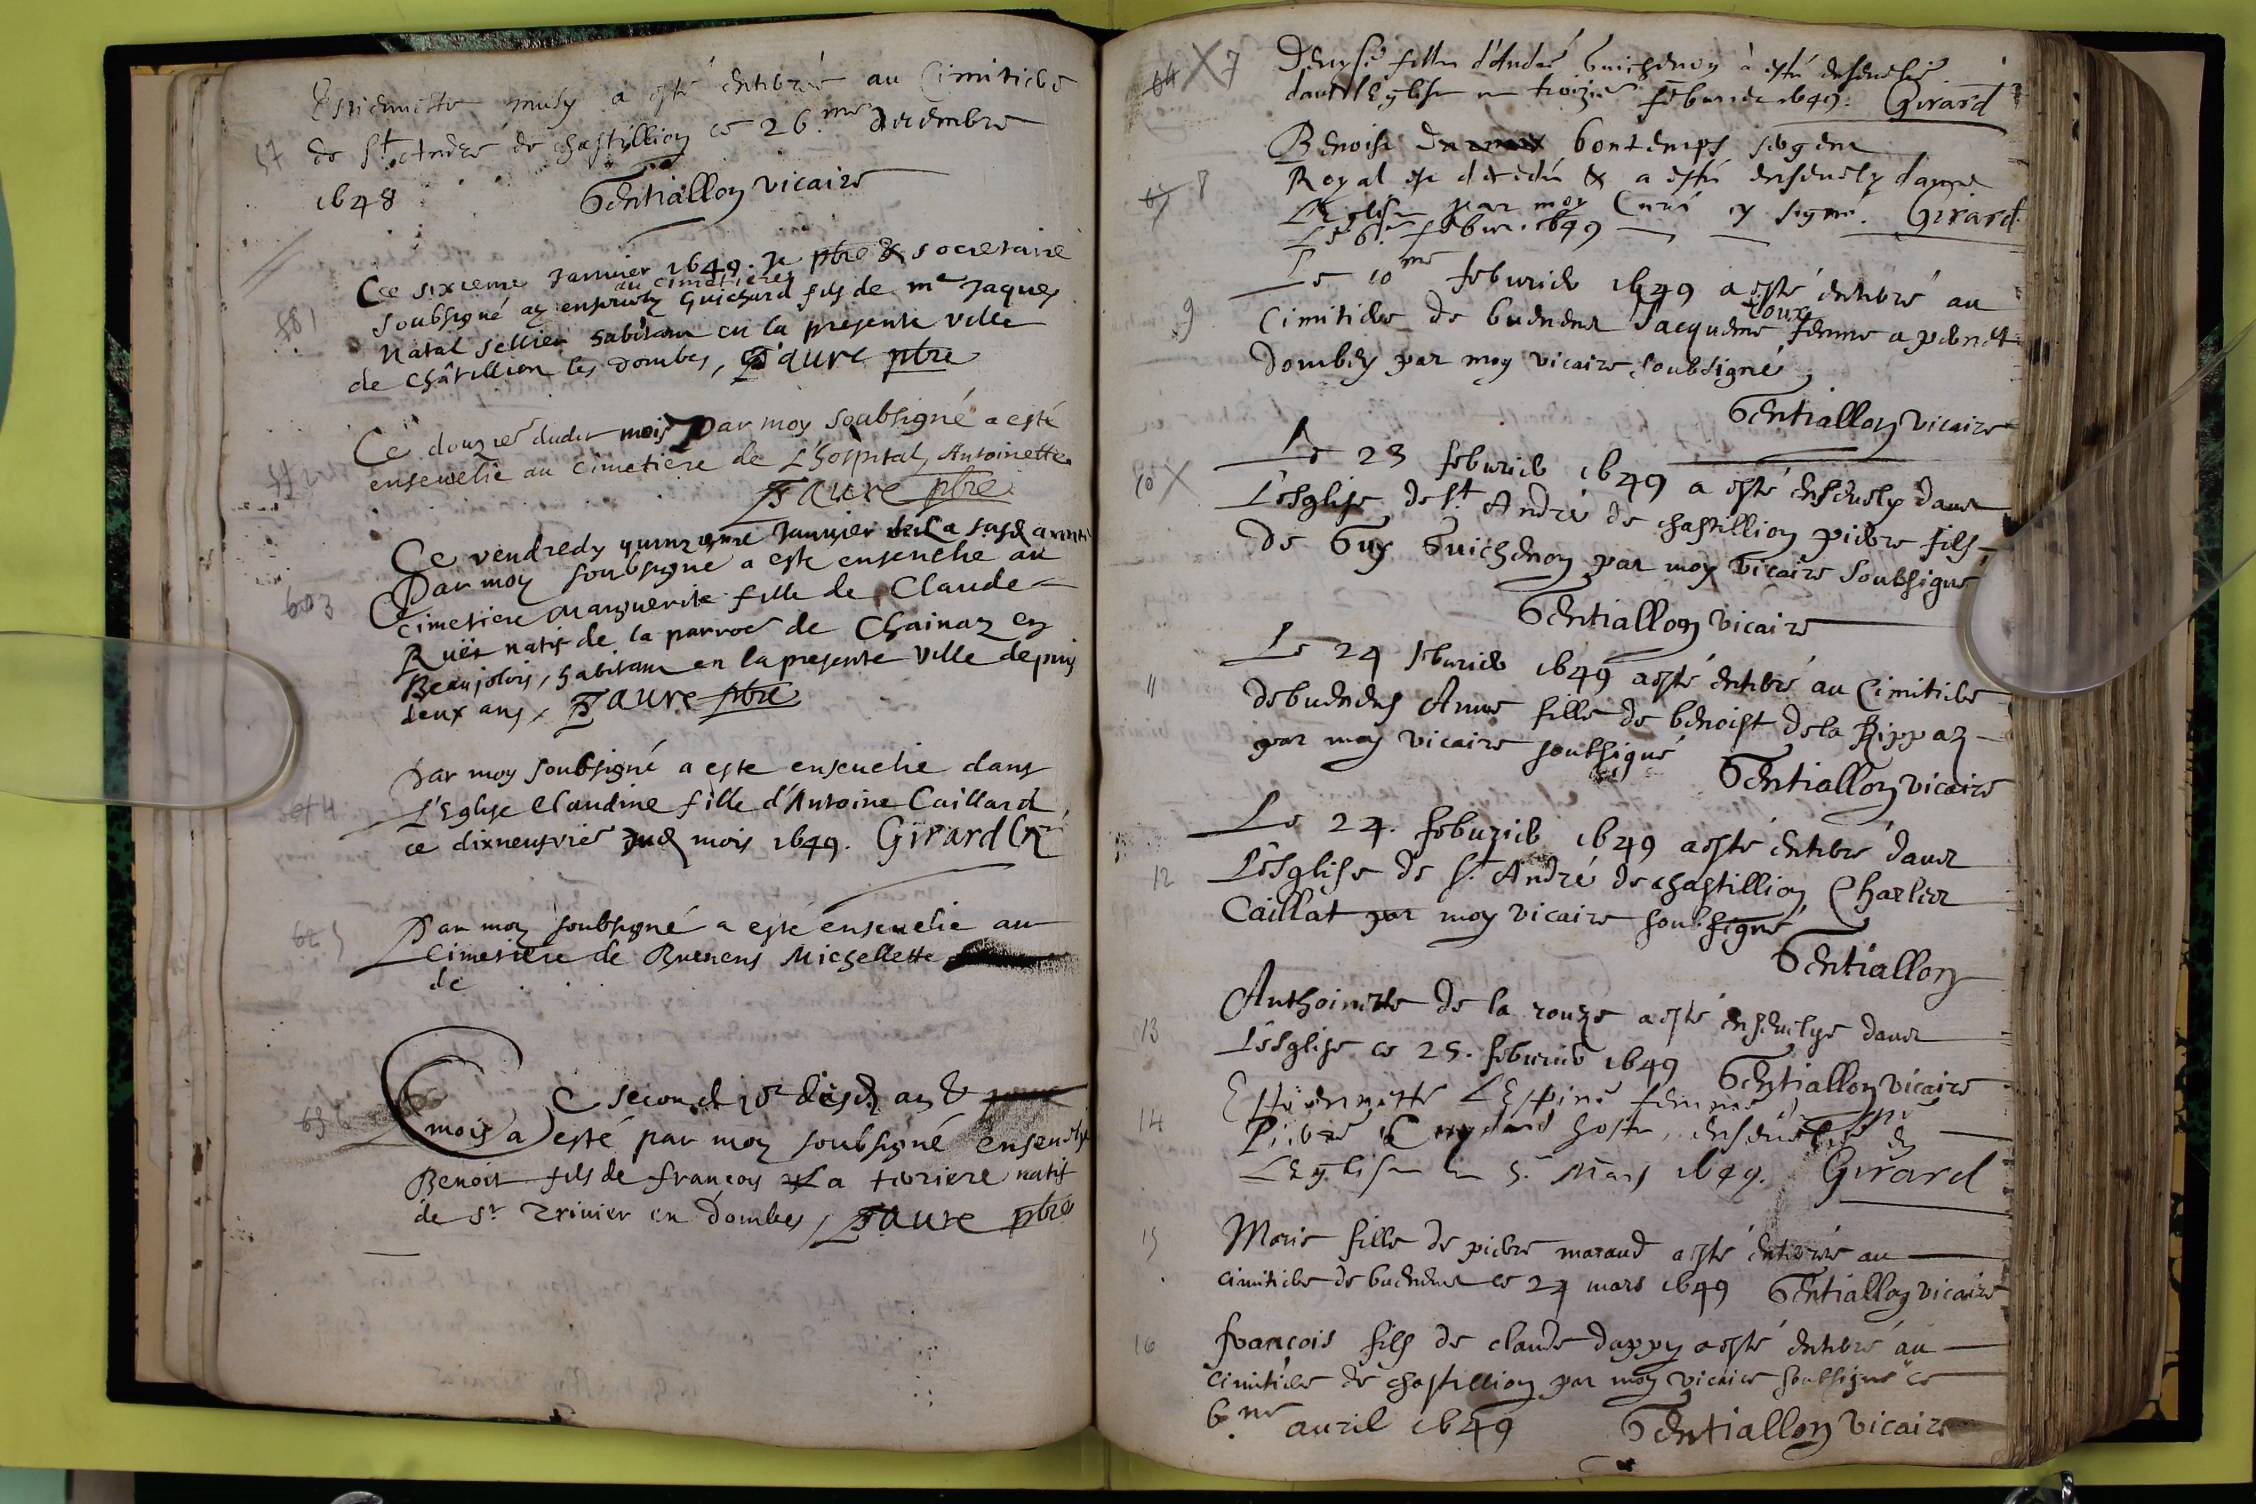 57
Estiennette musy a esté enterrée au Cimitiere
de St Andre de chastillion ce 26.me decembre
1648
Gentiallon vicaire
58 1
Ce sixieme Janvier 1649. Je pbre & societaire
au cimetiere
soubsigné ay ensevely Guichard fils de me Jaques
Natal sellier habitant en la presente ville
de Châtillion les Dombes, Faure pbre
59
Ce douzie dudit mois Par moy soubsigné a esté
ensevelie au cimetiere de L'hospital, Antoinette
Faure pbre
60 3
Ce vendredy quinzieme Janvier
Par moy soubsigné a esté ensevelie au
Cimetiere Marguerite fille de Claude
Ruët natif de la parroe de Chainaz en
Beaujolois, habitant en la presente Ville depuis
deux ans, Faure pbre
61 4
Par moy soubsigné a este ensevelie dans
L'Eglise Claudine fille d'Antoine Caillard
ce dixneufvie dud mois 1649. Girard Cré
62 5
Par moy soubsigné a esté ensevelie au
Cimetiere de Buenens Michellette
de
63 6
Ce second jor
mois a esté par moy soubsigné ensevely
Benoit fils de françois La
natif
de St Trivier en Dombes, Faure pbre
64 X 7
Denyse fille d'André Guichenon à esté ensevelie
dans l'Eglise le troizie febvrier 1649. Girard
65 8
Benoist bontemps sergent
Royal est decedé & a esté ensevely dans
L'Eglise par moy Curé cy signé. Girard
Le 6e febvr. 1649
9
Le 10me febvrier 1649 a esté enterré au
Cimitiere de buenens Jacqueme femme a pierre
Dombey par moy vicaire soubsigné
Gentiallon vicaire
10 X
Le 23 febvrier 1649 a esté ensevely dans
L'esglise de St André de chastillion pierre fils
de Guy Guichenon par moy vicaire soubsigné
Gentiallon vicaire
11
Le 24 febvrier 1649 a esté enterré au Cimitiere
de buenens Anne fille de benoist de la Rippaz
par moy vicaire soubsigné
Gentiallon vicaire
12
Le 24. febvrier 1649 a esté enterré dans
L'esglise de St André de chastillion Charles
Caillat par moy vicaire soubsigné
Gentiallon
13
Anthoinette de la rouze a esté ensevelye dans
L'esglise ce 25. febvrier 1649 Gentiallon vicaire
14
Estiennette L'Espine femme
Pierre hoste, ensevelie en
L'Eglise le 5. Mars 1649. Girard
15
Marie fille de pierre maraud a esté enterrée au
cimitiere de buenens ce 24 mars 1649 Gentiallon vicaire
16
françois fils de claude dappy a esté enterré au
cimitiere de chastillion par moy vicaire soubsigné ce
6.me avril 1649 Gentiallon vicaire